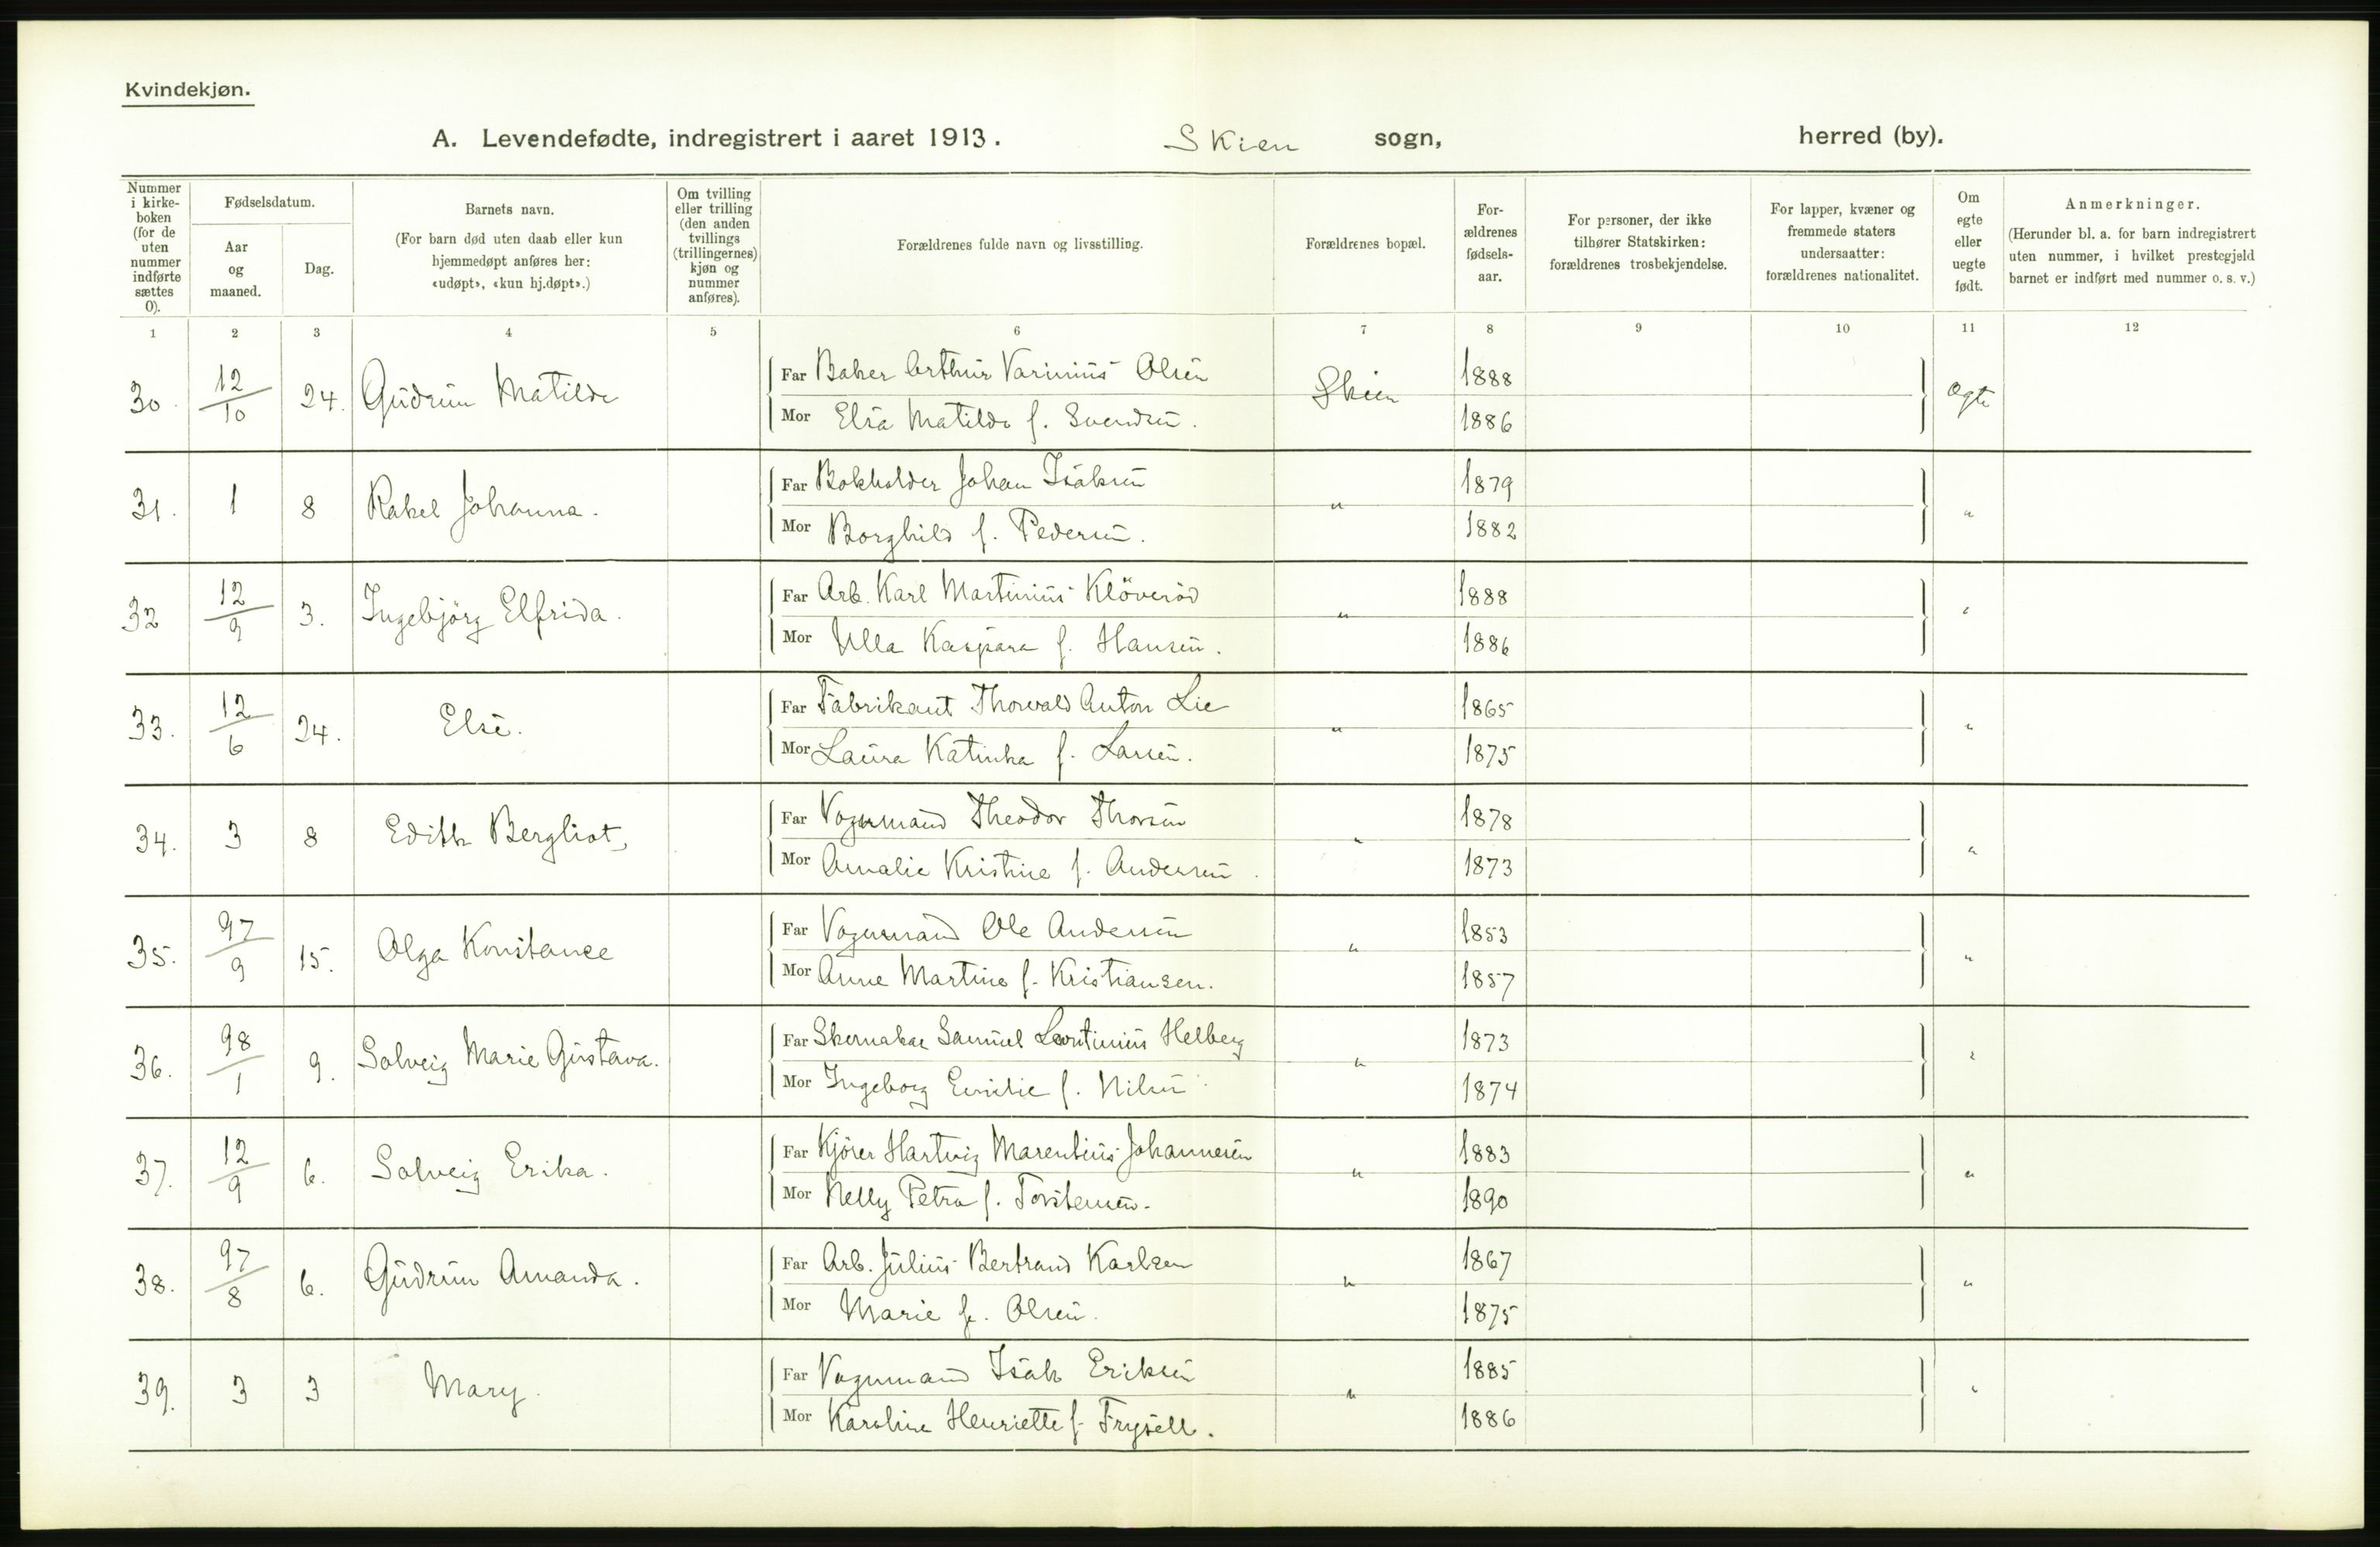 Kvindekjøn.
A. Levendefødte, indregistrert i aaret 1913. Skien sogn, herred (by).
Nummer i kirkeboken (for de uten nummer indførte sættes 0).
Fødselsdatum.
Aar og maaned.
Dag.
Barnets navn.
(For barn død uten daab eller kun hjemmedøpt anføres her: «udøpt», «kun hj.døpt».)
Om tvilling eller trilling (den anden tvillings (trillingernes) kjøn og nummer anføres).
Forældrenes fulde navn og livsstilling.
Forældrenes bopæl.
Forældrenes fødselsaar.
For personer, der ikke tilhører Statskirken: forældrenes trosbekjendelse.
For lapper, kvæner og fremmede staters undersaatter: forældrenes nationalitet.
Om egte eller uegte født.
Anmerkninger.
(Herunder bl. a. for barn indregistrert uten nummer, i hvilket prestegjeld barnet er indført med nummer o. s. v.)
1 2 3 4 5 6 7 8 9 10 11 12
30. 12/10 24. Gudrun Matilde Far Baker Arthur Varinius Olsen Skien 1888 egte
Mor Elsa Matilde f. Svendsen. 1886
31. 1 8 Rakel Johanna. Far Bokholder Johan Isaksen " 1879 "
Mor Borghild f. Pedersen. 1882
32 12/9 3. Ingebjörg Elfrida. Far Arb. Karl Martinius Klöveröd " 1888 "
Mor Ulla Kaspara f. Hansen. 1886
33. 12/6 24. Else. Far Fabrikant Thorvald Anton Lie " 1865 "
Mor Laura Katinka f. Larsen. 1875
34. 3 8 Edith Bergliot, Far Vognmand Theodor Thorsen " 1878 "
Mor Amalie Kristine f. Andersen. 1873
35. 97/9 15. Olga Konstance Far Vognmand Ole Andersen " 1853 "
Mor Anne Martine f. Kristiansen. 1857
36. 98/1 9. Solveig Marie Gustava. Far Skomakar Samuel Leontinius Helberg " 1873 "
Mor Ingeborg Emilie f. Nilsen. 1874
37. 12/9 6. Solveig Erika. Far Kjörer Hartvig Marentius Johannesen " 1883 "
Mor Nelly Petra f. Torstensen. 1890
38. 97/8 6. Gudrun Amanda. Far Arb. Julius Bertrand Karlsen " 1867 "
Mor Marie f. Olsen. 1875
39. 3 3 Mary. Far Vognmand Isak Eriksen " 1885 "
Mor Karoline Henriette f. Frysell. 1886